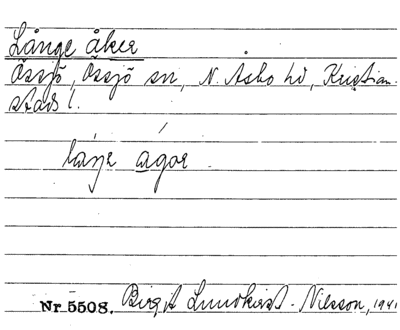 Långe åker
Össjö, Össjö sn, N. Åsbo hd, Kristian-
stads l.
láŋe ágər.
Nr 5508. Birgit Lundkvist-Nilsson, 1941